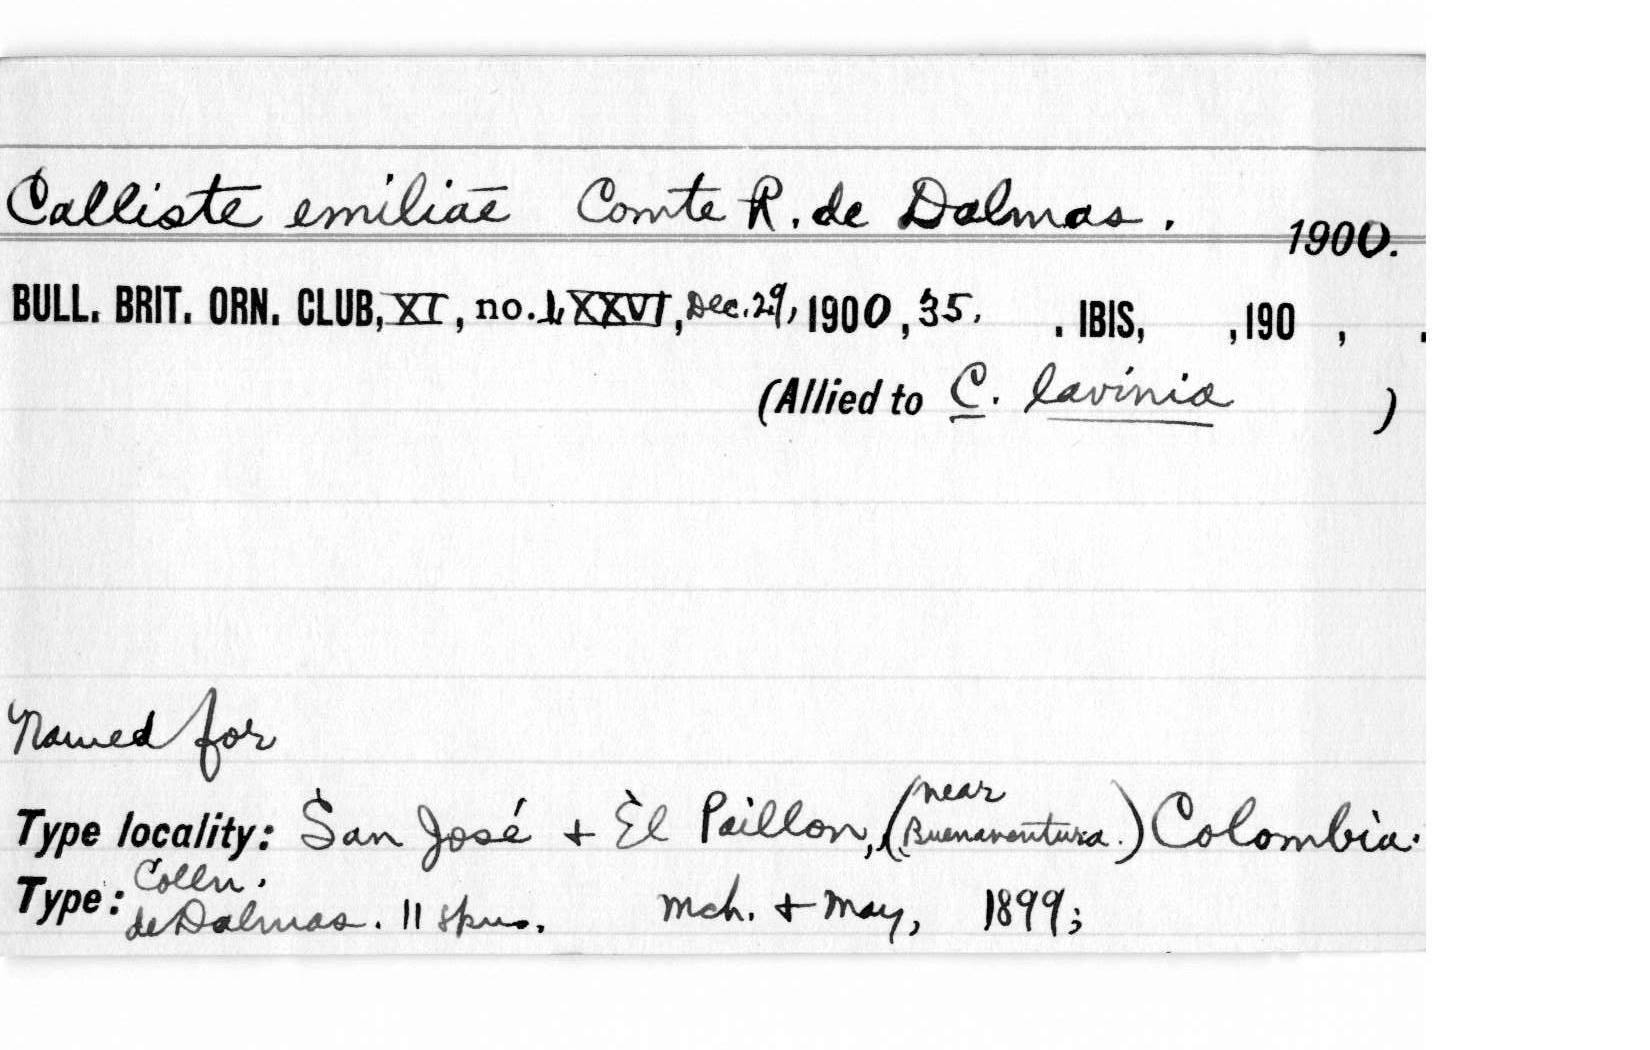 Calliste emiliae Comte R. de Dalmas. 1900.
BULL. BRIT. ORN. CLUB, XI, no. LXXVI, Dec. 29, 1900, 35. . IBIS, , 190 , .
(Allied to C. lavinia )
Named for
Type locality: San José + El Paillon, (near Buenaventura.) Colombia.
Type: Colln. de Dalmas. 11 spns. Mch. + May, 1899;